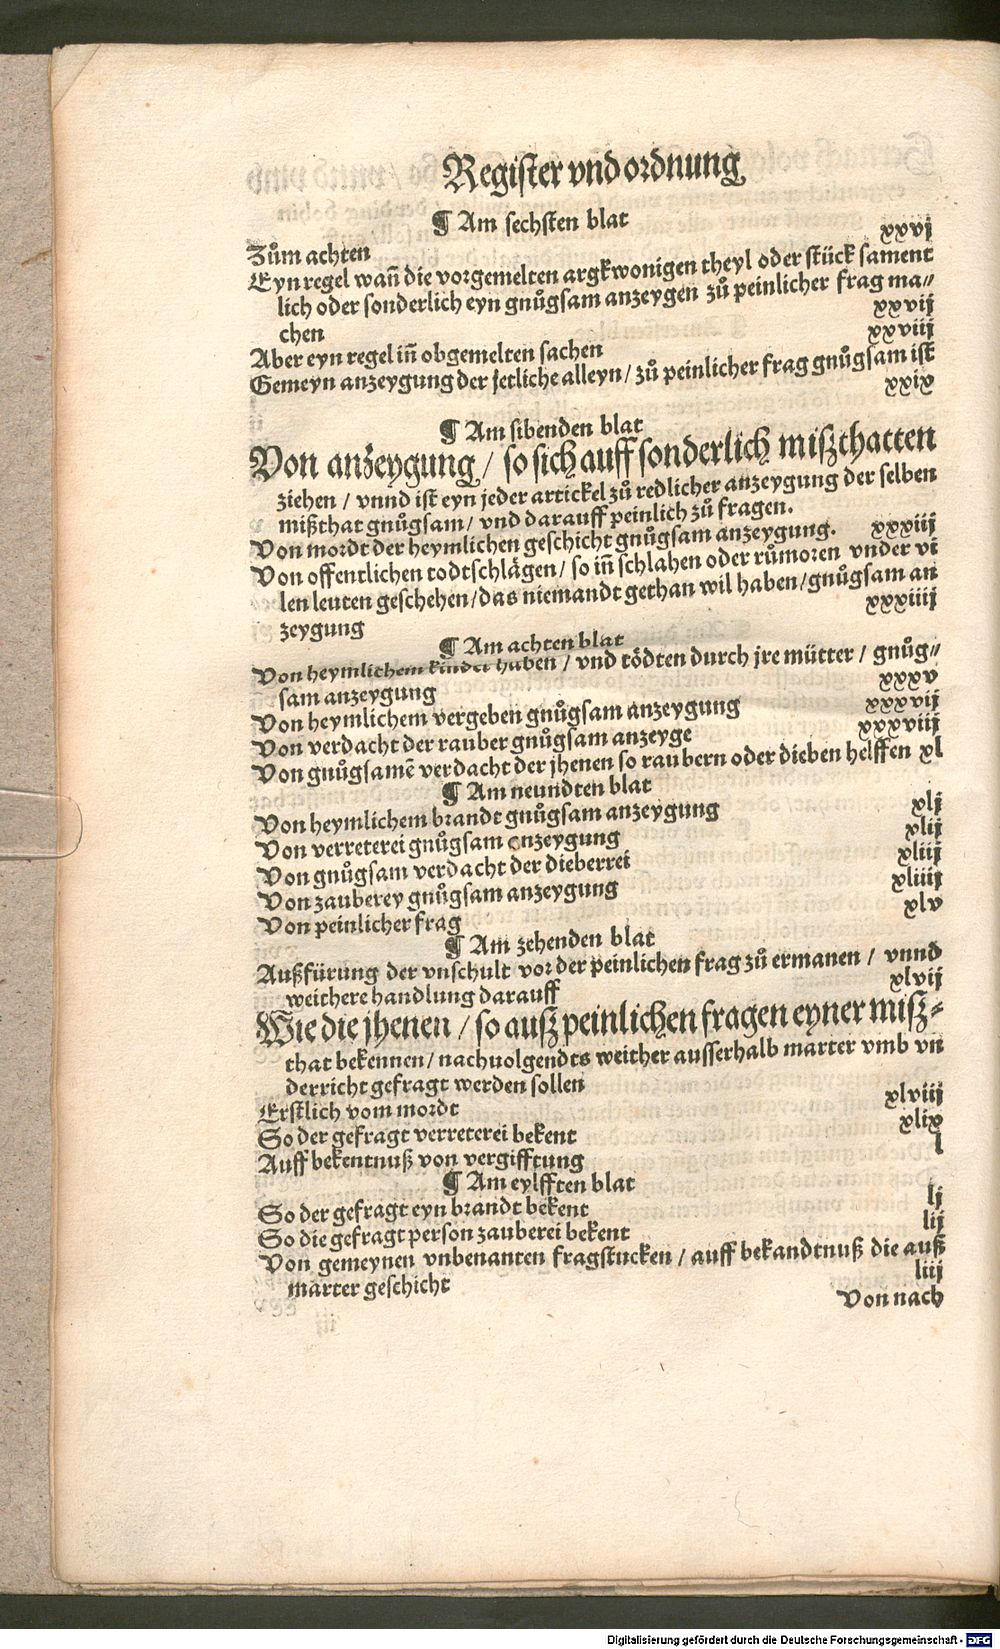 Register vnd ordnung
¶ Am sechsten blat
Zům achten xxvj
Eyn regel wañ die vorgemelten argkwonigen theyl oder stück sament
lich oder sonderlich eyn gnůgsam anzeygen zů peinlicher frag ma⸗
chen xxvij
Aber eyn regel iñ obgemelten sachen xxviij
Gemeyn anzeygung der jetliche alleyn / zů peinlicher frag gnůgsam ist
xxix
¶ Am sibenden blat
Von anzeygung / so sich auff sonderlich mißthatten
ziehen / vnnd ist eyn jeder artickel zů redlicher anzeygung der selben
mißthat gnůgsam / vnd darauff peinlich zů fragen.
Von mordt der heymlichen geschicht gnůgsam anzeygung. xxxiij
Von offentlichen todtschlägen / so iñ schlahen oder růmoren vnder vi
len leuten geschehen / das niemandt gethan wil haben / gnůgsam an
zeygung xxxiiij
¶ Am achten blat
Von heymlichem kinder haben / vnd tödten durch jre mütter / gnůg⸗
sam anzeygung xxxv
Von heymlichem vergeben gnůgsam anzeygung xxxvij
Von verdacht der rauber gnůgsam anzeyge xxxviij
Von gnůgsamē verdacht der jhenen so raubern oder dieben helffen xl
¶ Am neundten blat
Von heymlichem brandt gnůgsam anzeygung xlj
Von verreterei gnůgsam anzeygung xlij
Von gnůgsam verdacht der dieberrei xliij
Von zauberey gnůgsam anzeygung xliiij
Von peinlicher frag xlv
¶ Am zehenden blat
Außfürung der vnschult vor der peinlichen frag zů ermanen / vnnd
weithere handlung darauff xlvij
Wie die jhenen / so auß peinlichen fragen eyner miß⸗
that bekennen / nachuolgendts weither ausserhalb marter vmb vn
derricht gefragt werden sollen
Erstlich vom mordt xlviij
So der gefragt verreterei bekent xlix
Auff bekentnuß von vergifftung l
¶ Am eylfften blat
So der gefragt eyn brandt bekent lj
So die gefragt person zauberei bekent lij
Von gemeynen vnbenanten fragstucken / auff bekandtnuß die auß
marter geschicht liij
Von nach
Digitalisierung gefördert durch die Deutsche Forschungsgemeinschaft - DFG